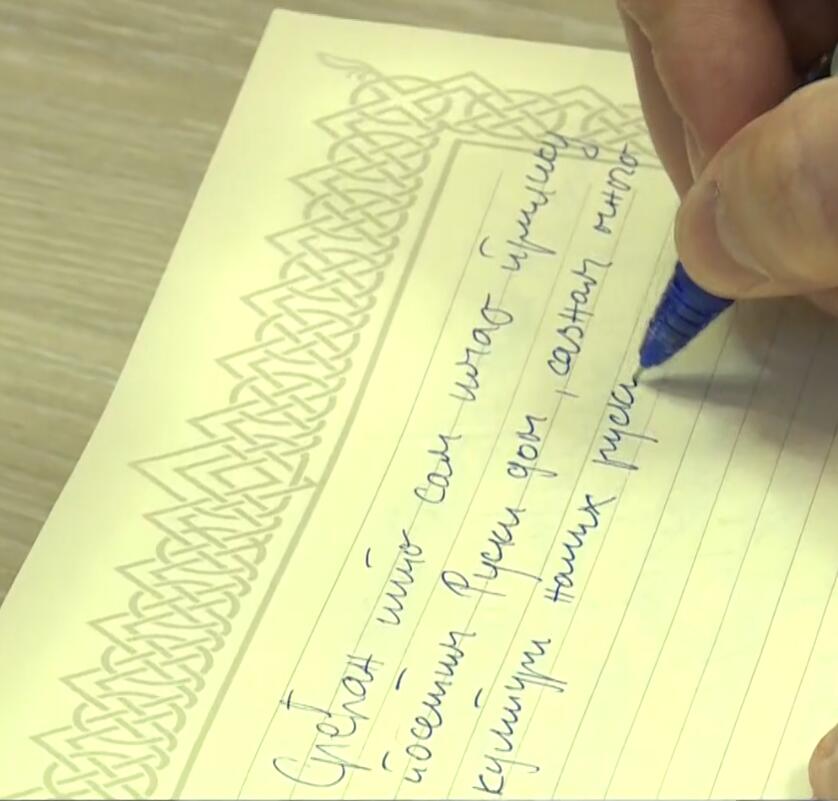 Срећан што сам имао прилику
посетим Руски дом, сазнам много
култури наших руск